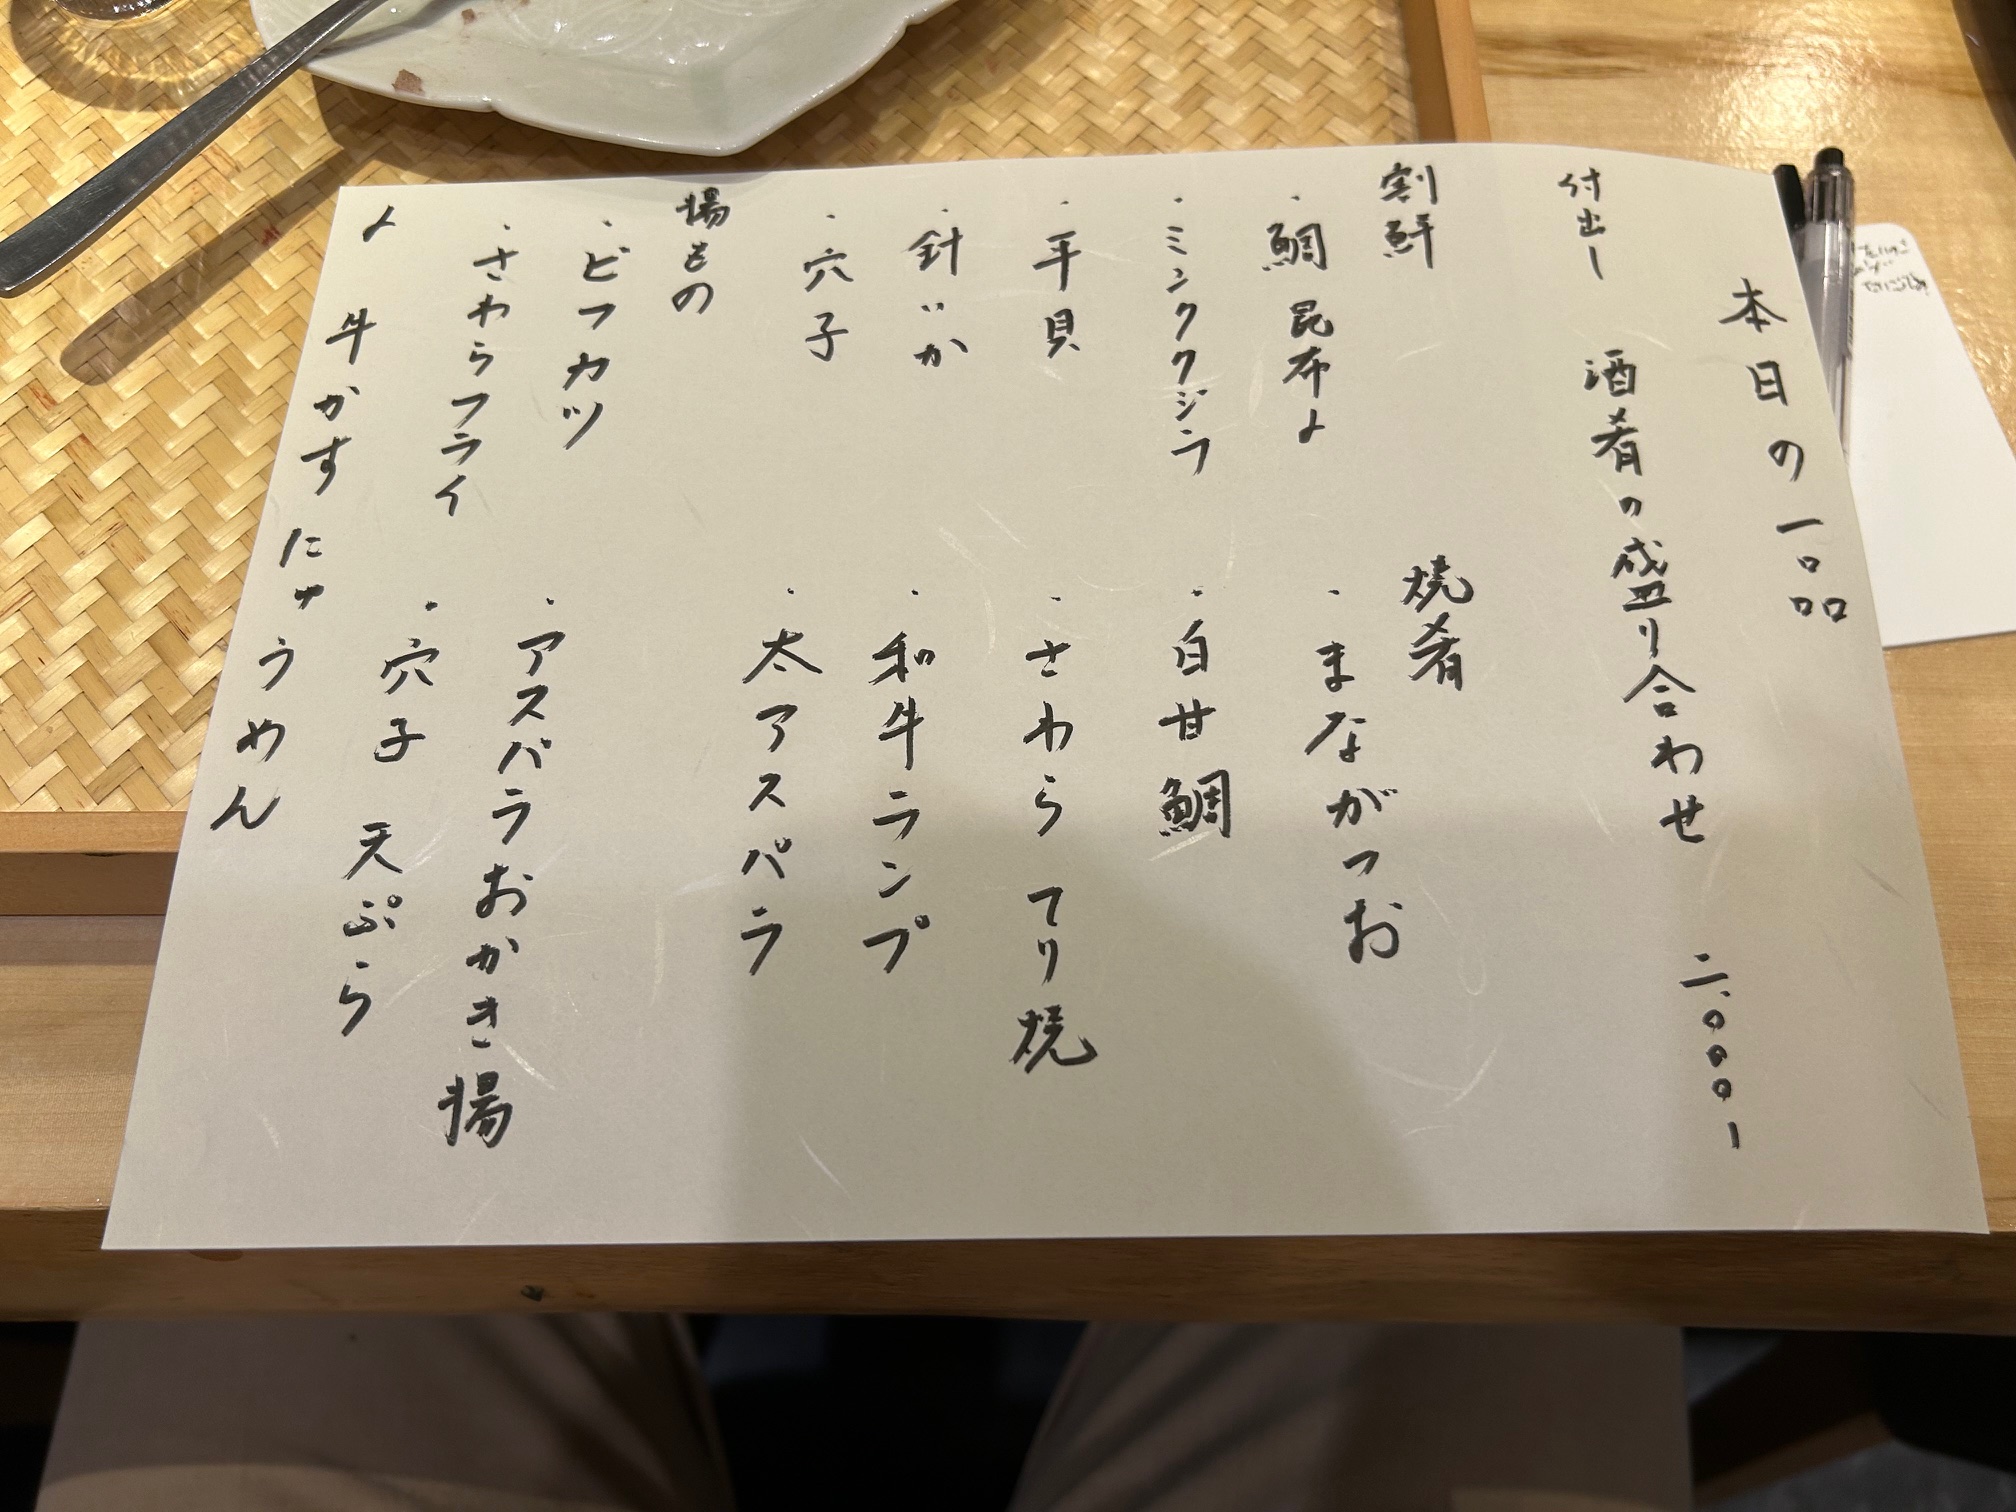 本日の一品
付出し 酒肴の盛り合わせ 二.〇〇〇ー
割鮮
・鯛昆布〆
・ミンククジラ
・平貝
・針いか
・穴子
焼肴
・まながつお
・白甘鯛
・さわら てり焼
・和牛ランプ
・太アスパラ
揚もの
・ビフカツ
・さわらフライ
・アスパラおかき揚
・穴子 天ぷら
〆 牛かすにゅうめん